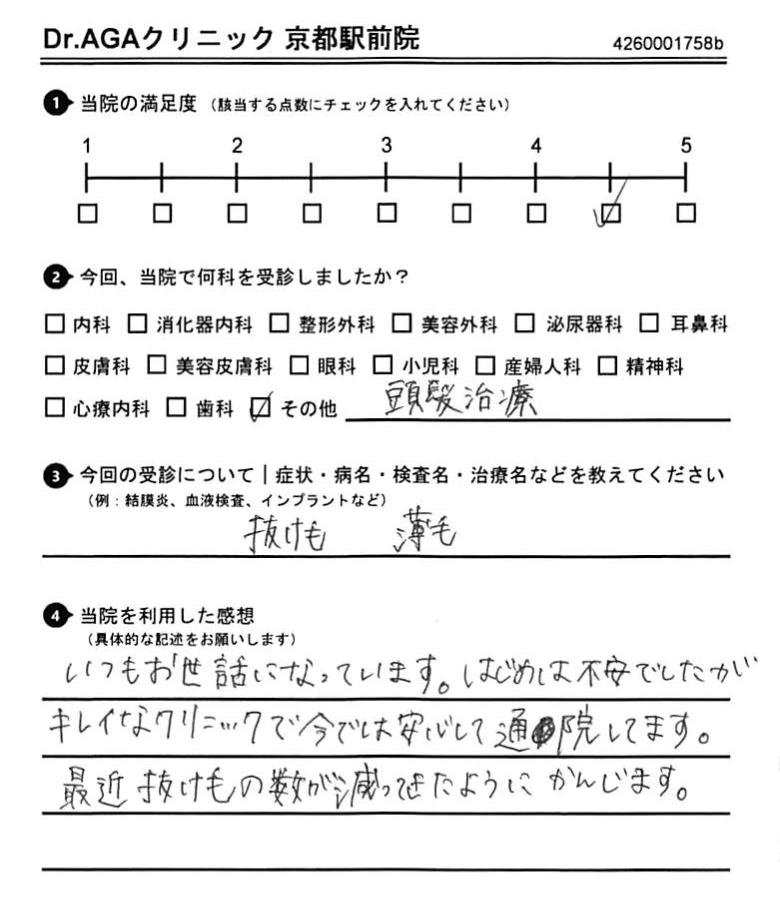 Dr.AGAクリニック 京都駅前院 4260001758b
1 当院の満足度 (該当する点数にチェックを入れてください)
1 2 3 4 5
2 今回、当院で何科を受診しましたか？
内科 消化器内科 整形外科 美容外科 泌尿器科 耳鼻科
皮膚科 美容皮膚科 眼科 小児科 産婦人科 精神科
心療内科 歯科 その他 頭髪治療
3 今回の受診について｜症状・病名・検査名・治療名などを教えてください
(例：結膜炎、血液検査、インプラントなど)
抜けも 薄毛
4 当院を利用した感想
(具体的な記述をお願いします)
いつもお世話になっています。はじめは不安でしたが
キレイなクリニックで今では安心して通院してます。
最近抜けもの数が減ってきたようにかんじます。